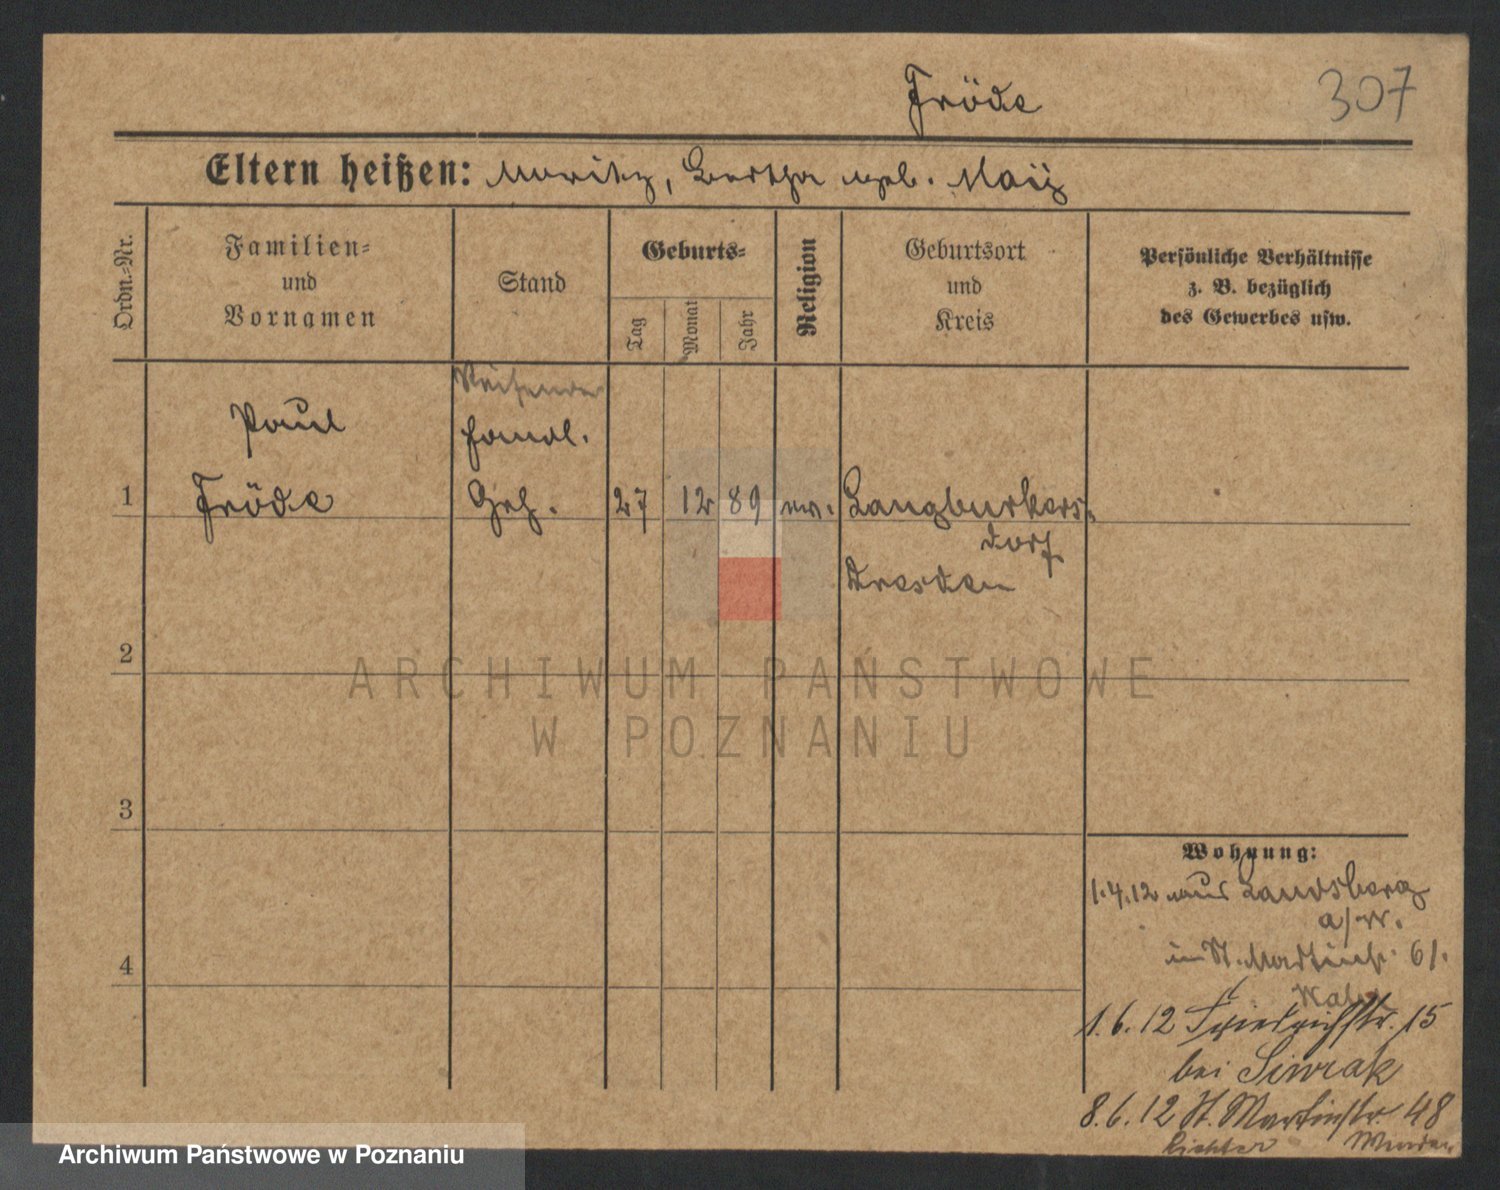 Fröde
307
Eltern heißen: Moritz, Bertha geb. May
Ordn.-Nr.
Familien-
und
Vornamen
Stand
Geburts-
Tag
Monat
Jahr
Religion
Geburtsort
und
Kreis
Persönliche Verhältnisse
z. B. bezüglich
des Gewerbes usw.
Reisender
Paul
Handl.
1 Fröde Geh. 27 12 89 ev. Langburkers-
dorf
Dresden
2
ARCHIWUM PAŃSTWOWE
W POZNANIU
3
Wohnung:
1.4.12 aus Landsberg
a/W.
4
in St. Martinstr. 61.
1.6.12 Friedrichstr. 15
bei
8.6.12 St. Martinstr. 48
Richter
Archiwum Państwowe w Poznaniu